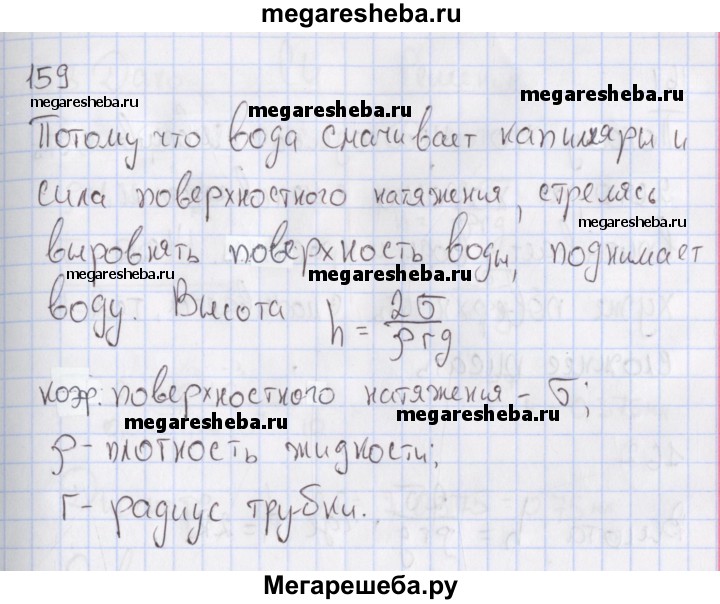 megaresheba.ru
159
megaresheba.ru megaresheba.ru megaresheba.ru
Потому что вода смачивает капилляры и
сила поверхностного натяжения, стремясь
megaresheba.ru
выровнять поверхность воды, поднимает
megaresheba.ru megaresheba.ru
воду. Высота h = 2σ/ρrg
коэф. поверхностного натяжения - σ;
megaresheba.ru megaresheba.ru
ρ - плотность жидкости;
r - радиус трубки.
Мегарешеба.ру